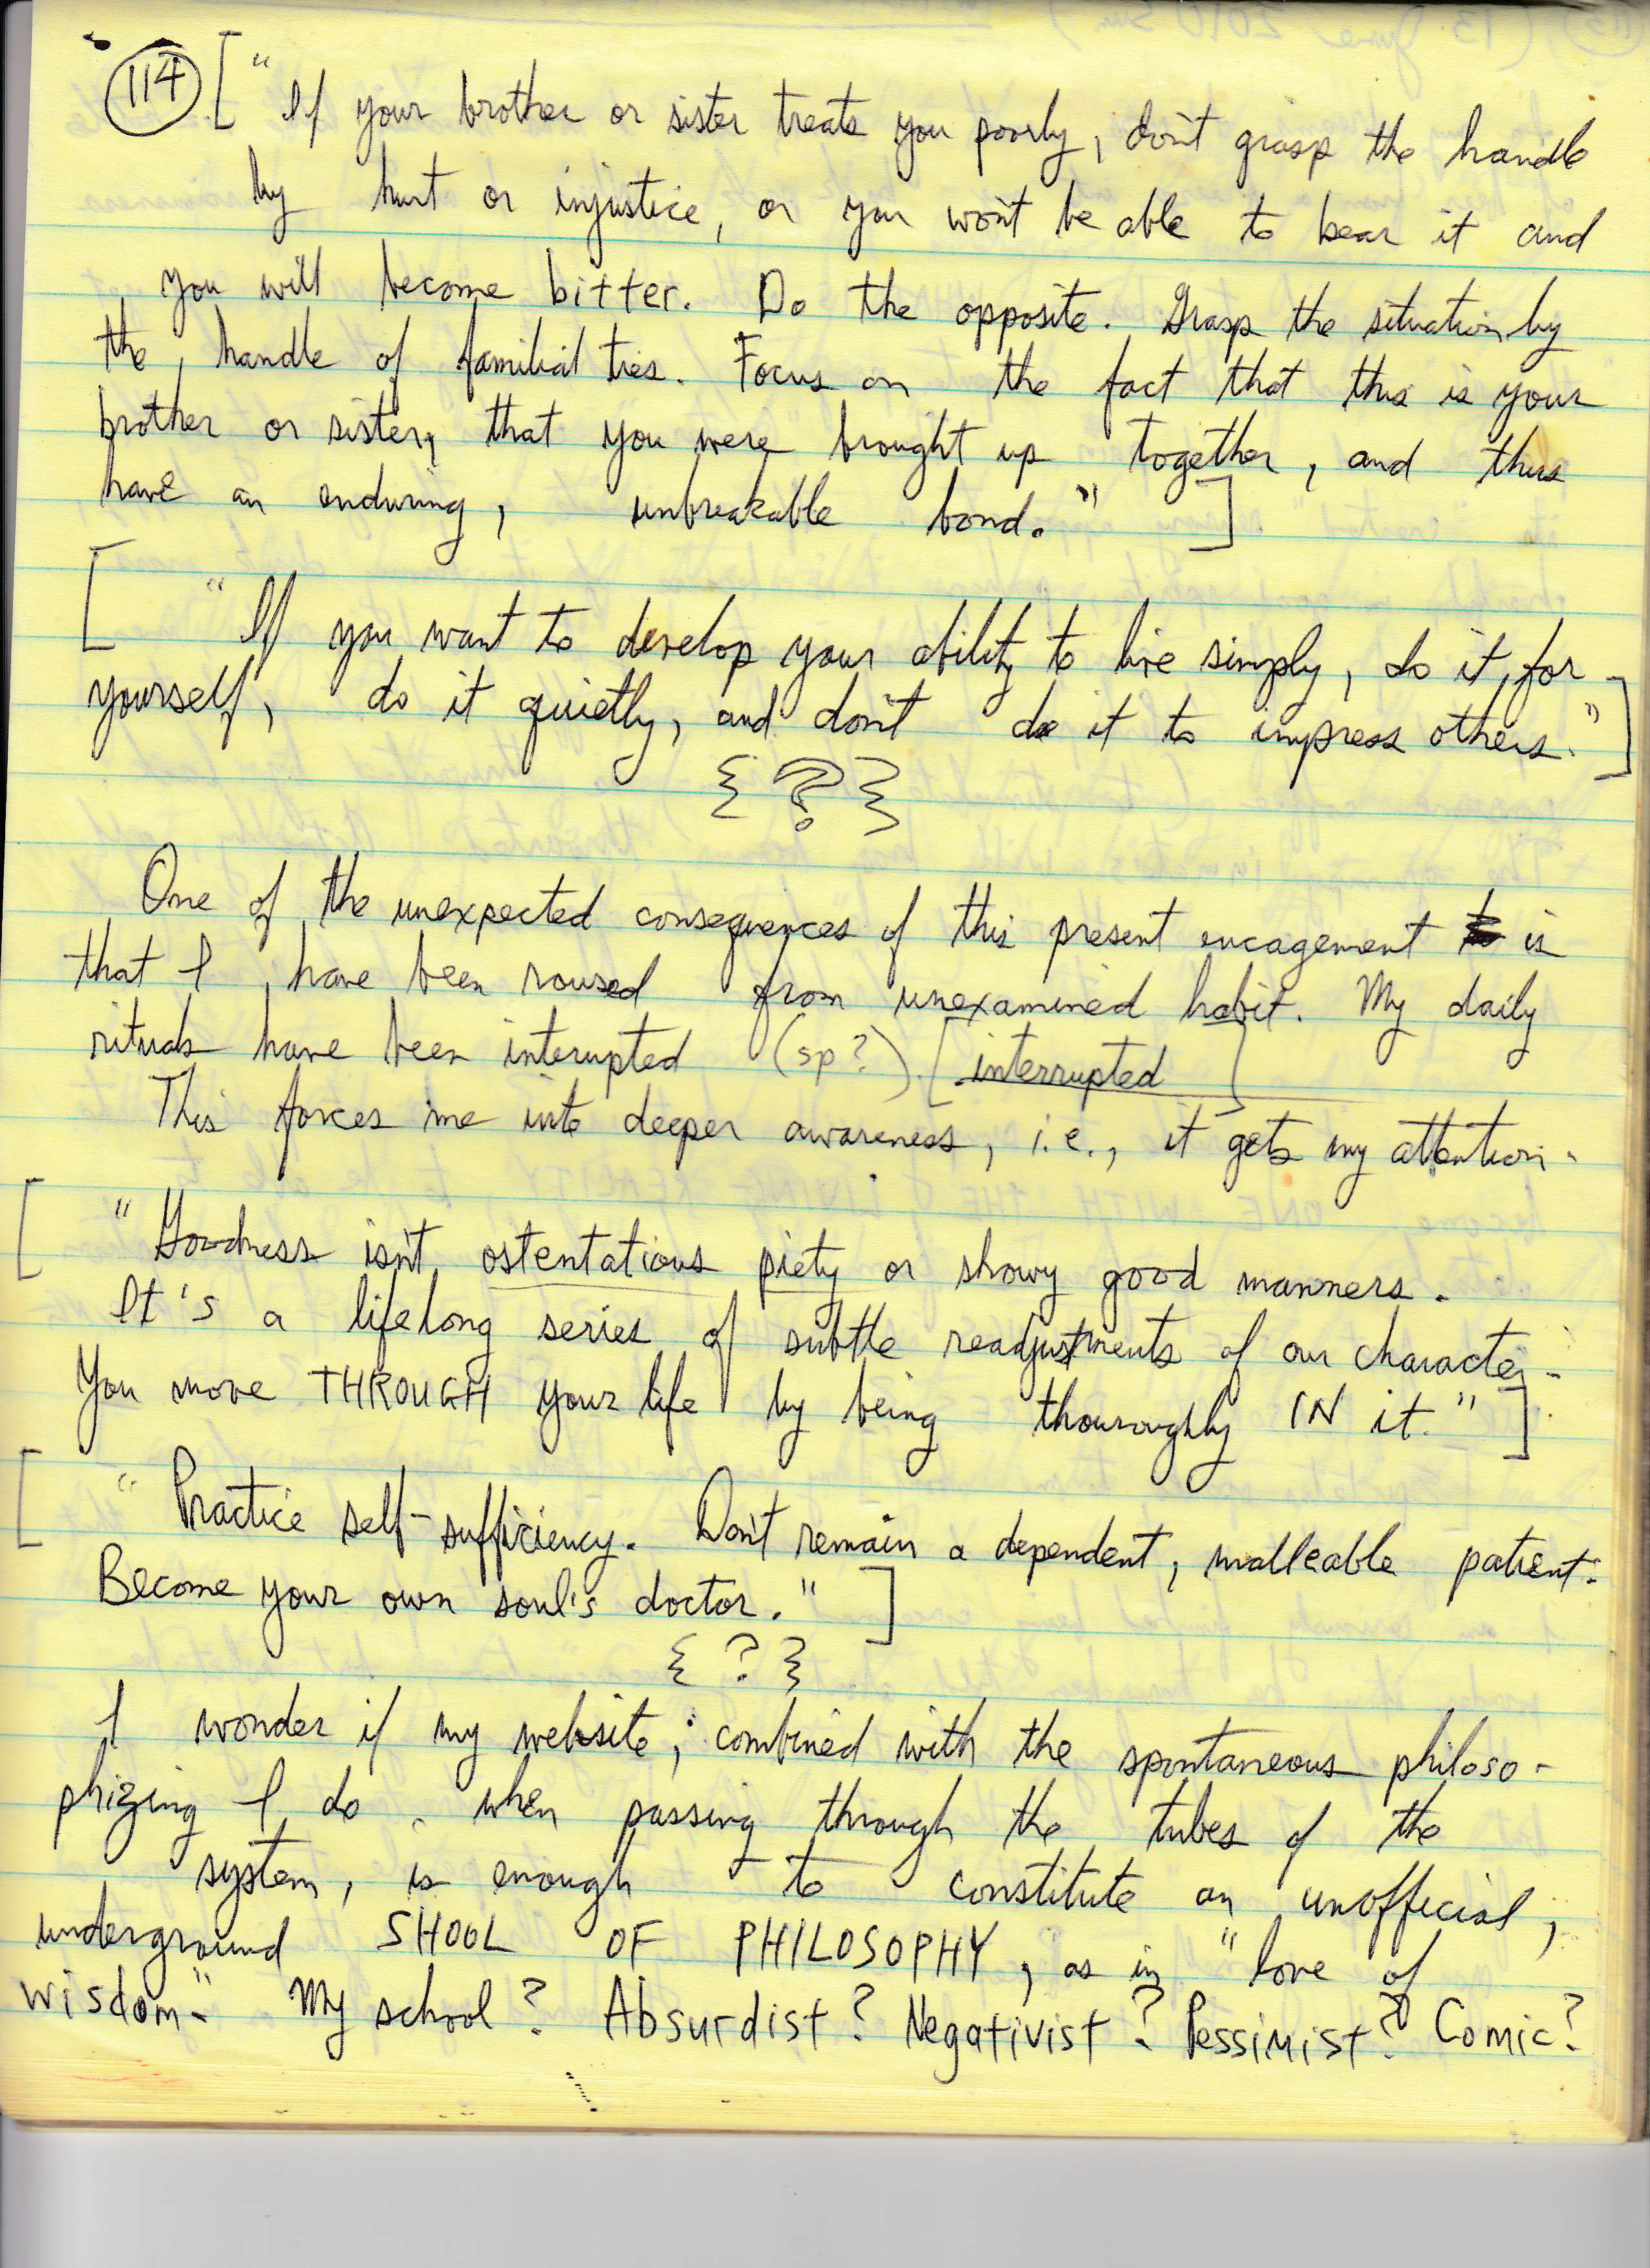 114 [ " If your brother or sister treats you poorly, don't grasp the handle
by hurt or injustice, or you won't be able to bear it and
you will become bitter. Do the opposite. Grasp the situation by
the handle of familial ties. Focus on the fact that this is your
brother or sister, that you were brought up together, and thus
have an enduring, unbreakable bond." ]
[ "If you want to develop your ability to live simply, do it for
yourself, do it quietly, and don't do it to impress others." ]
{ ? }
One of the unexpected consequences of this present encagement is
that I have been roused from unexamined habit. My daily
rituals have been interupted (sp?) [interrupted]
This forces me into deeper awareness, i.e., it gets my attention.
[ "Goodness isn't ostentatious piety or showy good manners.
It's a lifelong series of subtle readjustments of our character.
You move THROUGH your life by being thouroughly IN it." ]
[ "Practice self-sufficiency. Don't remain a dependent, malleable patient.
Become your own soul's doctor." ]
{ ? }
I wonder if my website, combined with the spontaneous philoso-
phizing I do when passing through the tubes of the
system, is enough to constitute an unofficial,
underground SHOOL OF PHILOSOPHY, as in "love of
wisdom." My school? Absurdist? Negativist? Pessimist? Comic?